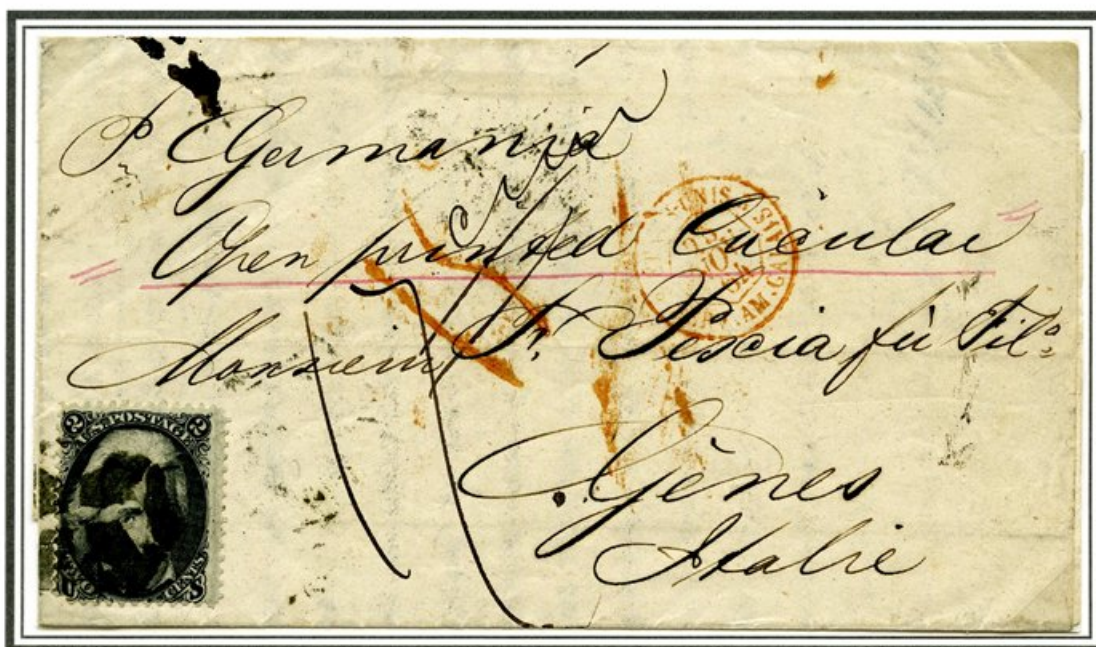 Pr Germania
Open printed Circular
Monsieur Fr. Pescia fù Fil⁰
Gênes
Italie
U.S. POSTAGE
2 2